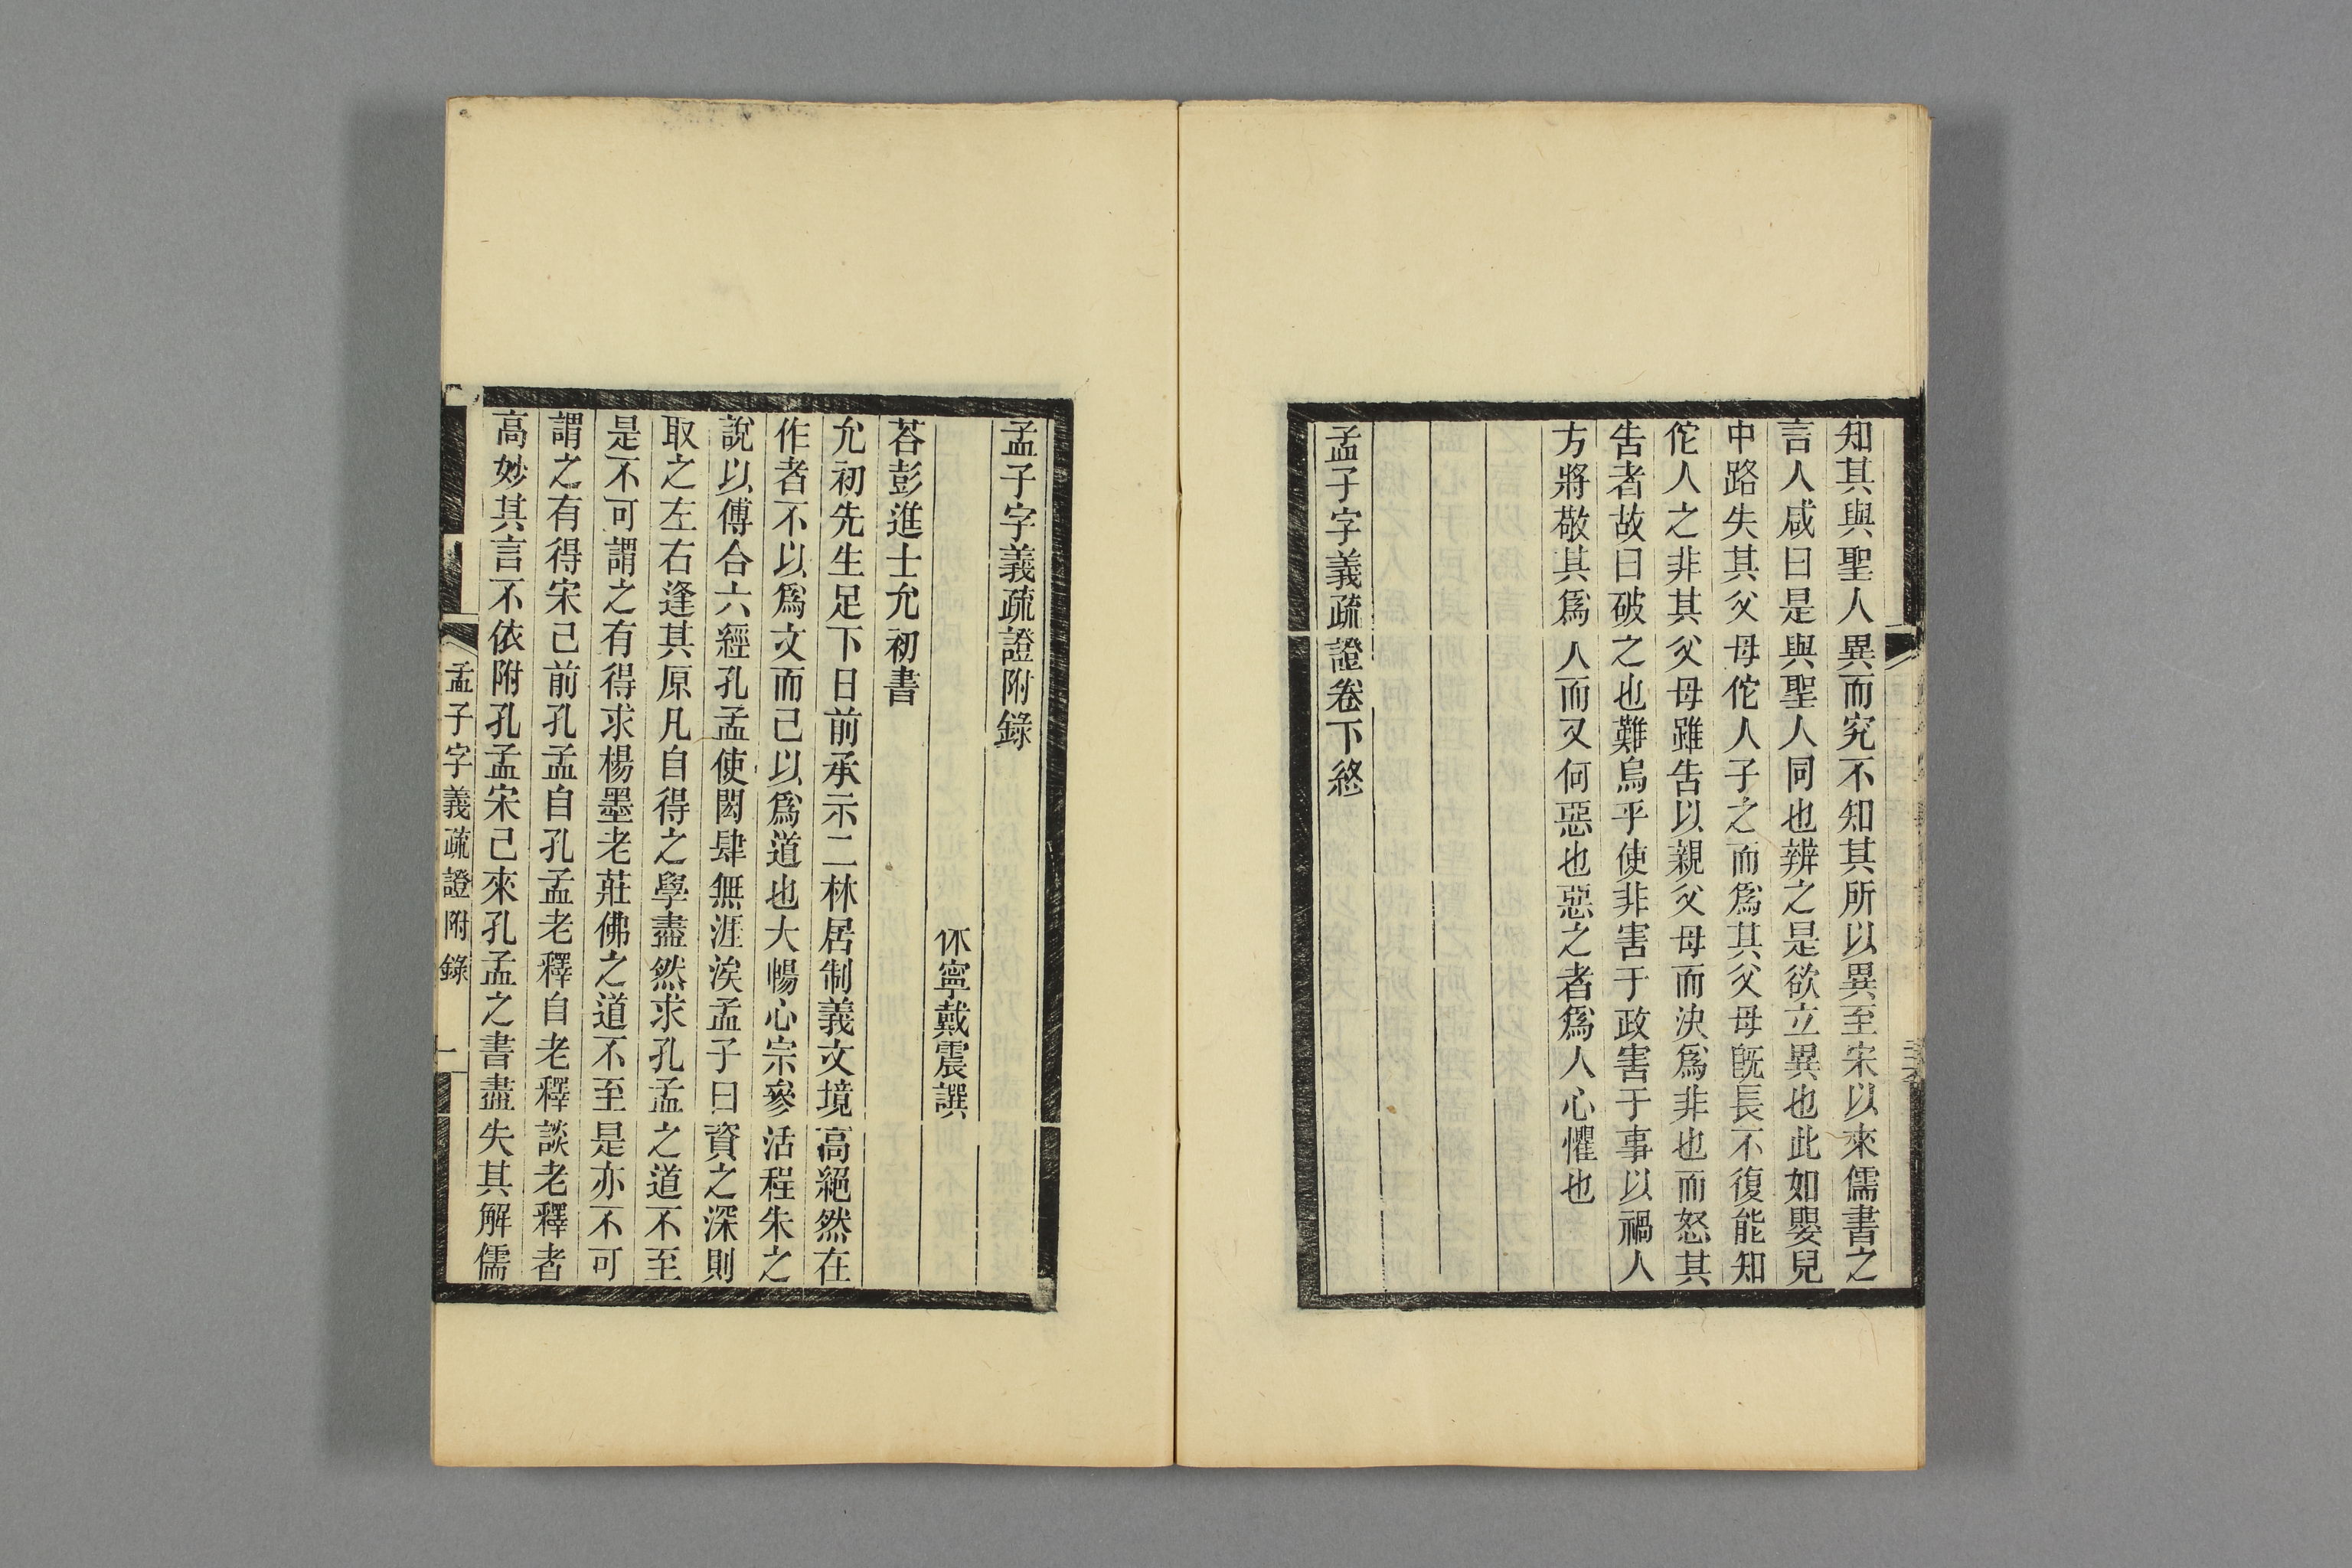 知其與聖人異而究不知其所以異至宋以來儒書之
言人咸曰是與聖人同也辨之是欲立異也此如嬰兒
中路失其父母佗人子之而爲其父母旣長不復能知
佗人之非其父母雖告以親父母而決爲非也而怒其
告者故曰破之也難烏乎使非害于政害于事以禍人
方將敬其爲人而又何惡也惡之者爲人心懼也
孟子字義疏證卷下終
孟子字義疏證附錄
休寧戴震譔
荅彭進士允初書
允初先生足下日前承示二林居制義文境高絕然在
作者不以爲文而已以爲道也大暢心宗參活程朱之
說以傅合六經孔孟使閎肆無涯涘孟子曰資之深則
取之左右逢其原凡自得之學盡然求孔孟之道不至
是不可謂之有得求楊墨老莊佛之道不至是亦不可
謂之有得宋己前孔孟自孔孟老釋自老釋談老釋者
高妙其言不依附孔孟宋己來孔孟之書盡失其解儒
孟子字義疏證附錄 一